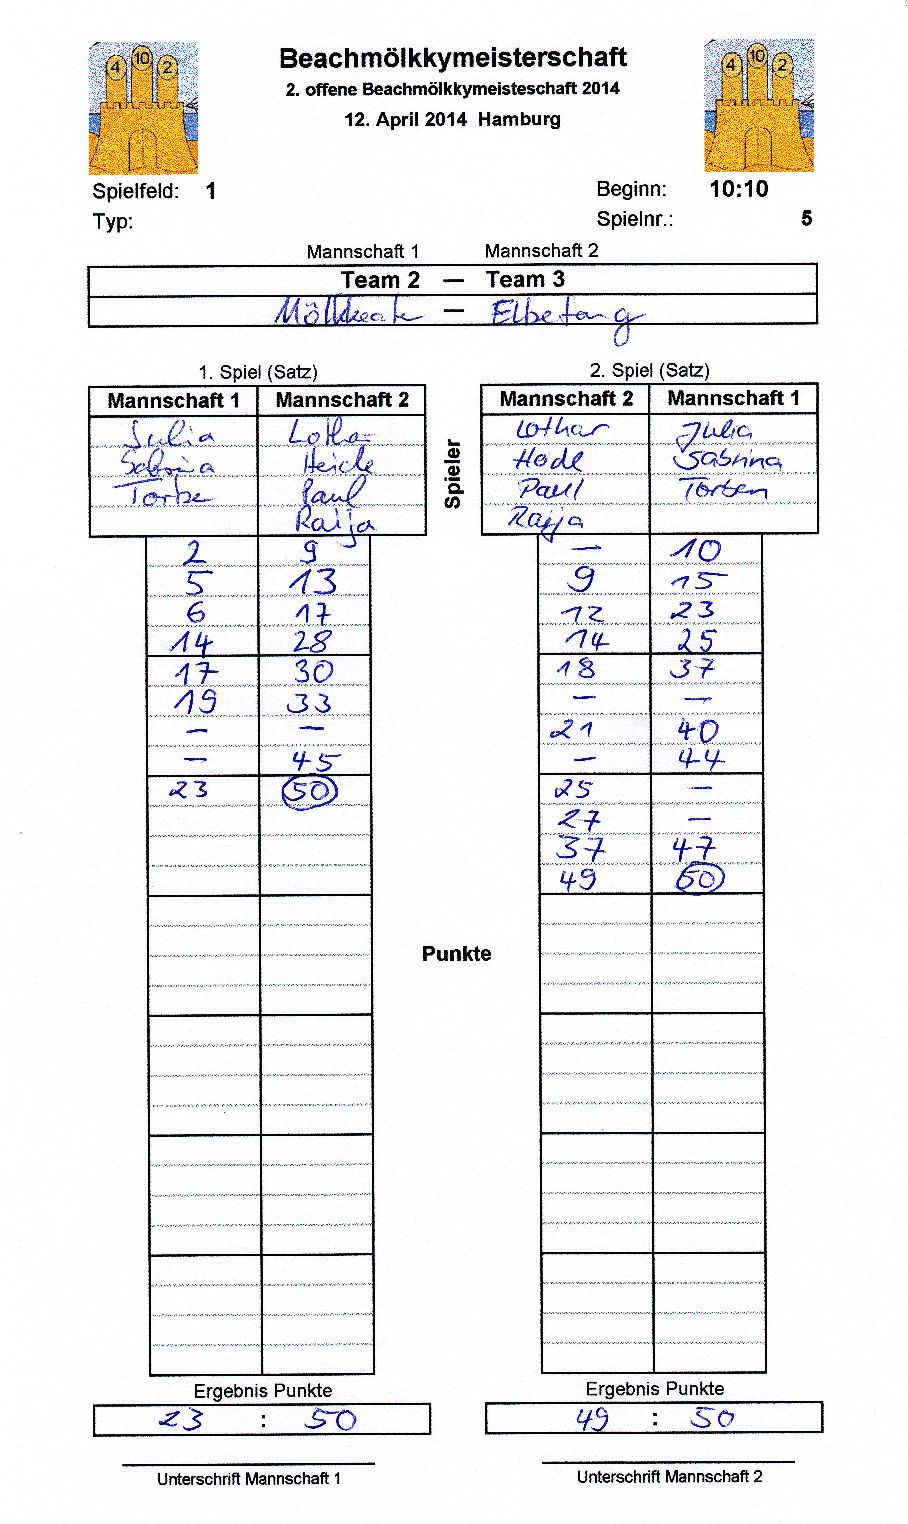 4 10 2
4 10 2
Beachmölkkymeisterschaft
2. offene Beachmölkkymeisteschaft 2014
12. April 2014 Hamburg
Spielfeld: 1
Beginn: 10:10
Typ:
Spielnr.: 5
Mannschaft 1 Mannschaft 2
Team 2 — Team 3
— Elbetang
1. Spiel (Satz) 2. Spiel (Satz)
Mannschaft 1 Mannschaft 2 Mannschaft 2 Mannschaft 1
Spieler
Julia Lothar Lothar Julia
Sabrina Heide Heide Sabrina
Torbe Paul Paul Torben
Raija Raija
2 9 — 10
5 13 9 15
6 17 12 23
14 28 14 25
17 30 18 37
19 33 — —
— — 21 40
— 45 — 44
23 50 25 —
27 —
37 47
49 50
Punkte
Ergebnis Punkte Ergebnis Punkte
23 : 50 49 : 50
Unterschrift Mannschaft 1 Unterschrift Mannschaft 2